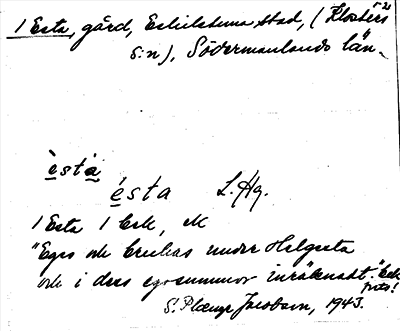 1 Esta, gård, Eskilstuna stad, (Klosters
s:n), Södermanlands län.
èsta
ésta L. Hg.
1 Esta 1 Eek, M
"Eges och brukas under Helgesta
och i dess egosummor inräknadt." Eek
S. Plænge Jacobson, 1943.